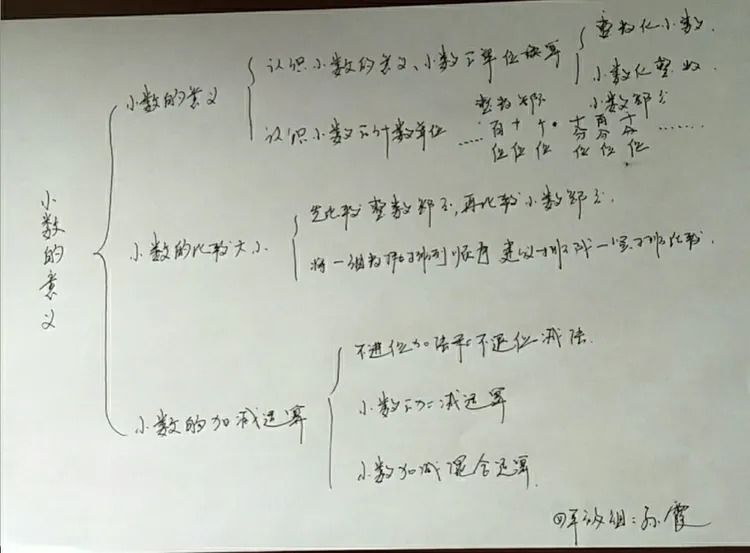 小数的意义
小数的意义
认识小数的意义、小数的单位换算
整数化小数
小数化整数
认识小数的计数单位
整数部分 小数部分
……百十个·十百千……
分分分
位位位 位位位
小数的比较大小
先比较整数部分,再比较小数部分.
将一组数排列顺序建议
比较.
小数的加减运算
不进位加法和不退位减法.
小数的加减运算
小数加减混合运算.
四年级组:孙霞